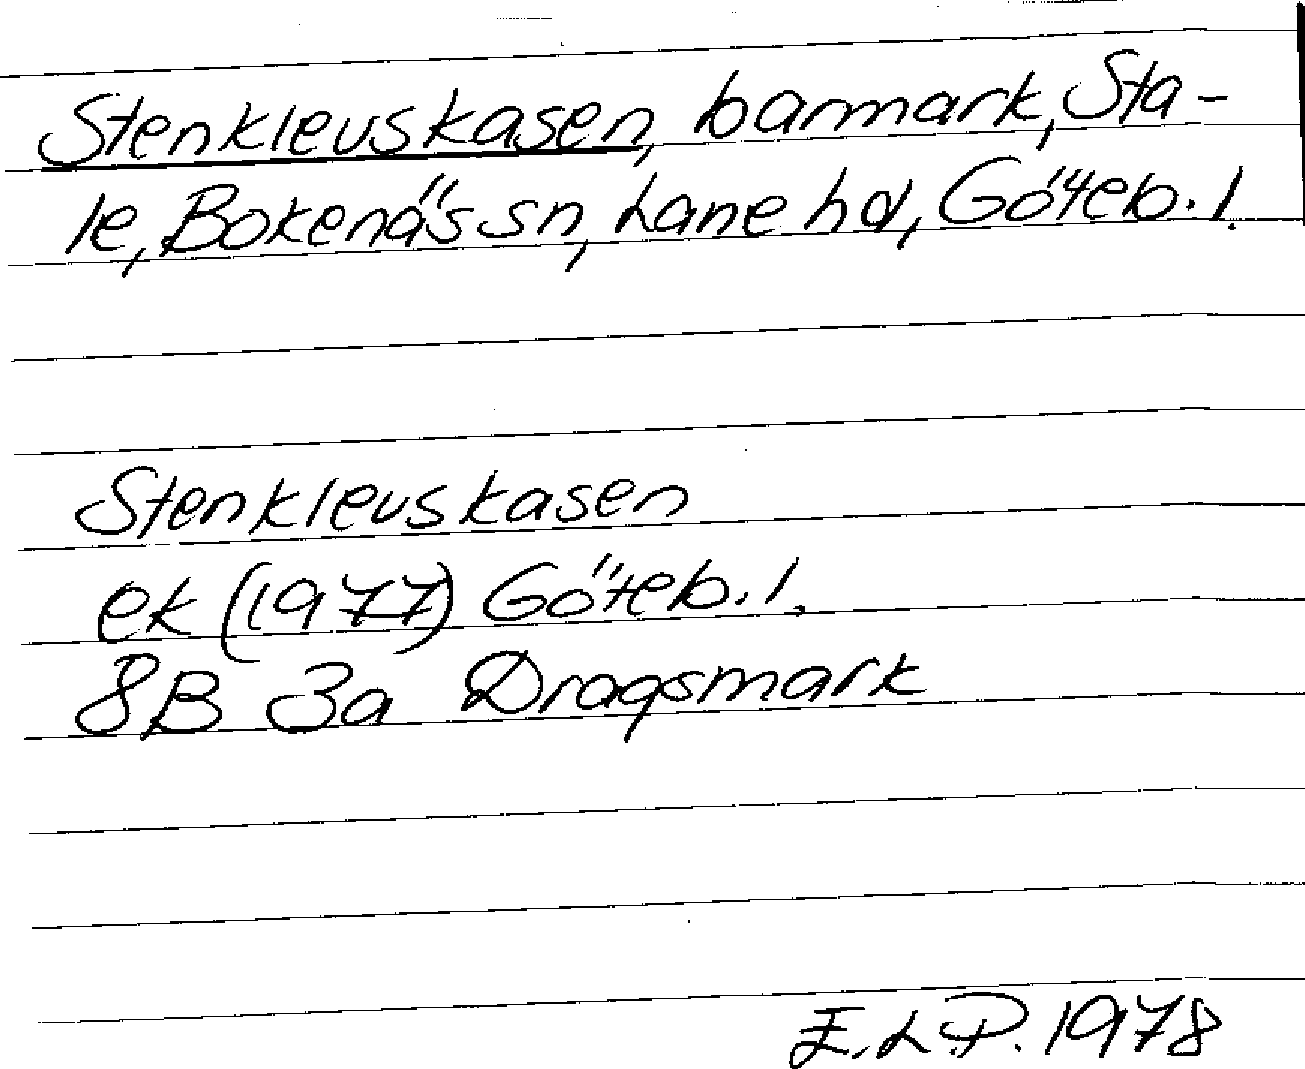 Stenklevskasen, barmark, Sta-
le, Bokenäs sn, Lane hd, Göteb. l.
Stenklevskasen
ek (1977) Göteb. l.
8B 3a Dragsmark
E.L.P. 1978